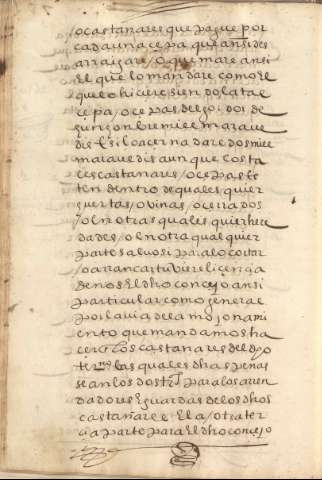 o castañares que pague por
cada una cepa que ansi des
arraigare / o quemare ansi
el que lo mandare como el
que lo hiciere siendo la tal ce
cepa / o cepas de
mill e marave
dis e si lo acerna dare dos mill
maravedis aunque costa
les castañares / o cepas es
ten dentro de quales quier
guertas / o viñas / o cerrados
/ o en otras quales quier here
dades / o en otra qual quier
parte salvo si para lo cortar
/ o arrancar tubiere licencia
de nos el dho concejo ansi
particular como general
por la via de la mojonami
ento que mandamos ha
cer los castañares del dho
termo las quales dhas penas
sean los dos ter para los arren
dadores e guardas de los dhos
castañares e la / otra ter
cia parte para el dho concejo